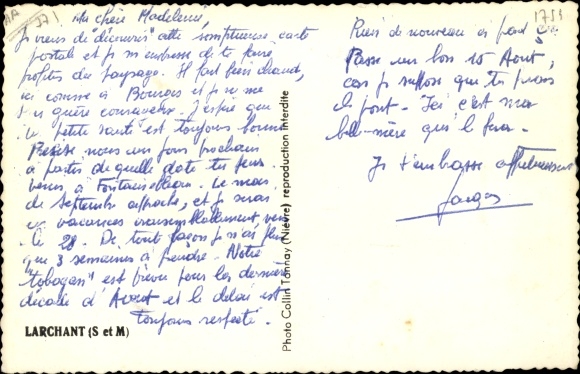 Ma chère Madeleine,
Je viens de "découvrir" cette somptueuse carte
postale et je m'empresse de te faire
profiter du paysage. Il fait bien chaud,
ici comme à Bourges et je ne me
guère courageux. J'espère que
ta "petite santé" est toujours bonne
nous un jour prochain
à partir de quelle date tu peux
venir à Fontainebleau. Le mois
de septembre approche, et je serai
en vacances vraisemblablement vers
le 28. De toute façon je n'ai plus
que 3 semaines à prendre. Notre
"toboggan" est prévu pour la dernière
décade d'Août et le délai est
toujours respecté.
LARCHANT (S et M)
Photo Collin Tannay (Nièvre) reproduction interdite
Rien de nouveau à part ça
Passe un bon 15 Août,
car je suppose que tu feras
le pont. Ici c'est ma
belle-mère qui le fera.
Je t'embrasse affectueusement